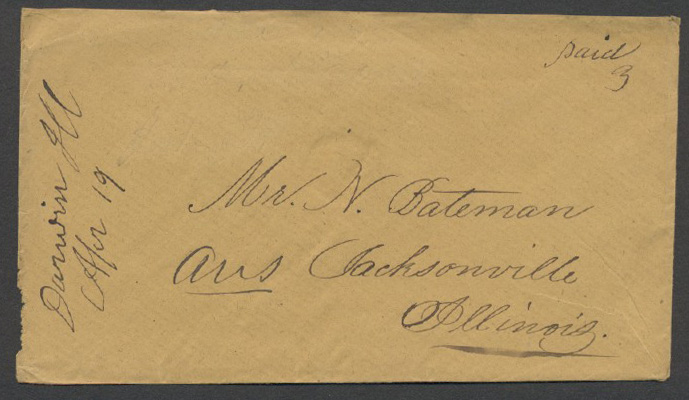 paid
3
Darwin Ill
Apr 19
Mr. N. Bateman
Ans Jacksonville
Illinois.